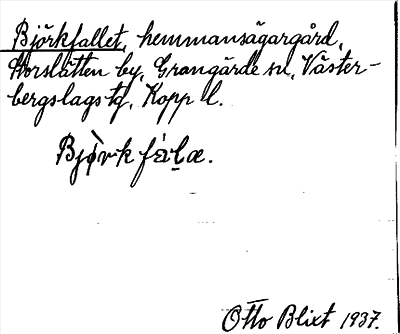 Björkfallet, hemmansägargård,
Storslätten by, Grangärde sn, Väster-
bergslags tg, Kopp l.
Bjø̀rkfàḷæ.
Otto Blixt 1937.